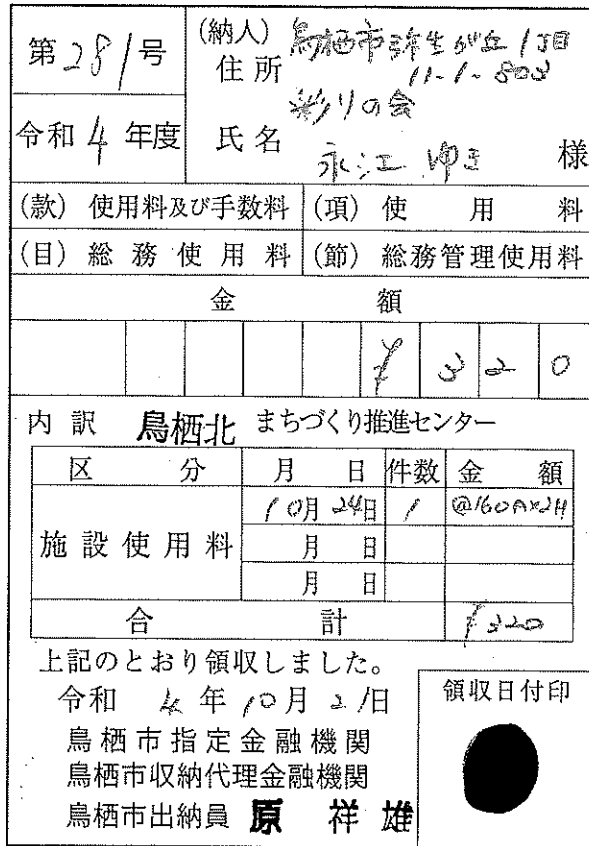 第281号
(納人)
住所
鳥栖市弥生が丘1丁目
11-1-803
令和4年度
氏名
彩りの会
永江 ゆき 様
(款) 使用料及び手数料
(項) 使用料
(目) 総務使用料
(節) 総務管理使用料
金額
¥320
内訳 鳥栖北 まちづくり推進センター
区分 月日 件数 金額
施設使用料
10月24日 1 @160円×2H
月 日
月 日
合計 ¥320
上記のとおり領収しました。
令和 4年10月21日
領収日付印
鳥栖市指定金融機関
鳥栖市収納代理金融機関
鳥栖市出納員 原 祥雄